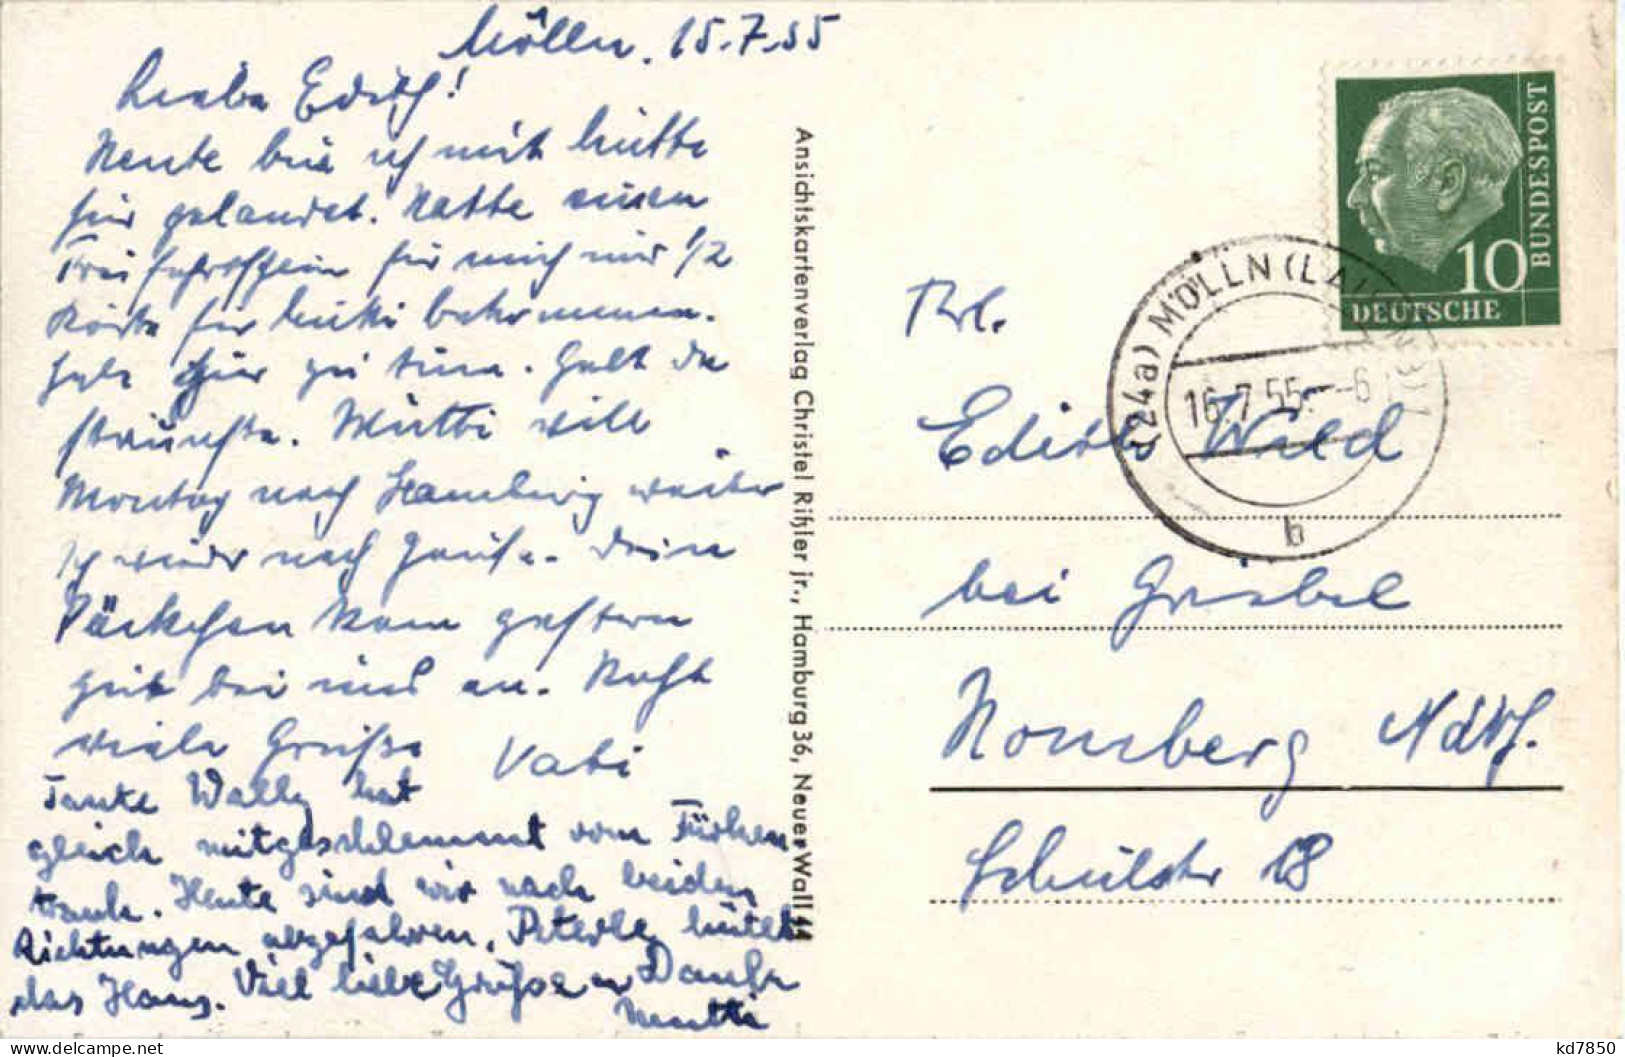 Mölln. 15.7.55
Liebe Edith!
Heute bin ich mit Mutti
hier gelandet. Hatte einen
Freifahrschein für mich und 1/2
Karte für Mutti bekommen.
Habe hier zu tun. Geht die
Mutti will
Montag nach Hamburg weiter
ich wieder nach Hause. Dein
Päckchen kam gestern
gut bei uns an. Recht
viele Grüße Vati
Tante Wally hat
gleich mitgeschlemmt vom
trank. Heute sind wir nach beiden
Richtungen abgefahren. Peterle hütet
das Haus. Viel liebe Grüße u Dank
Mutti
Ansichtskartenverlag Christel Rißler jr., Hamburg 36, Neuer Wall 44
DEUTSCHE
BUNDESPOST
10
(24a) MÖLLN (LAUENB)
16.7.55.--6
b
Frl.
Edith Wild
bei Griebel
Homberg Ndrh.
Schulstr 18
kd7850